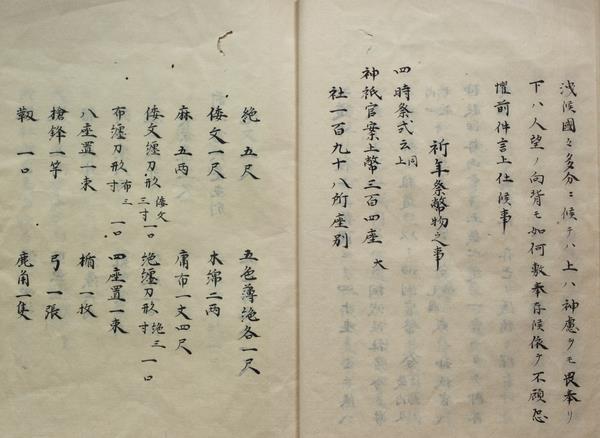 浅候國々多分ニ候テハ上ハ神慮タモ畏奉リ
下ハ人望ノ向背モ如何敷奉存候依テ不顧恐
懼前件言上仕候事
祈年祭幣物之事
四時祭式云同上
神祇官案上幣三百四座大
社一百九十八所座別
絁五尺 五色薄絁各一尺
倭文一尺 木綿二両
麻五両 庸布一丈四尺
倭文纏刀形倭文三寸一口 絁纏刀形絁三寸一口
布纏刀形布三寸一口 四座置一束
八座置一束 楯一枚
槍鋒一竿 弓一張
靱一口 鹿角一隻